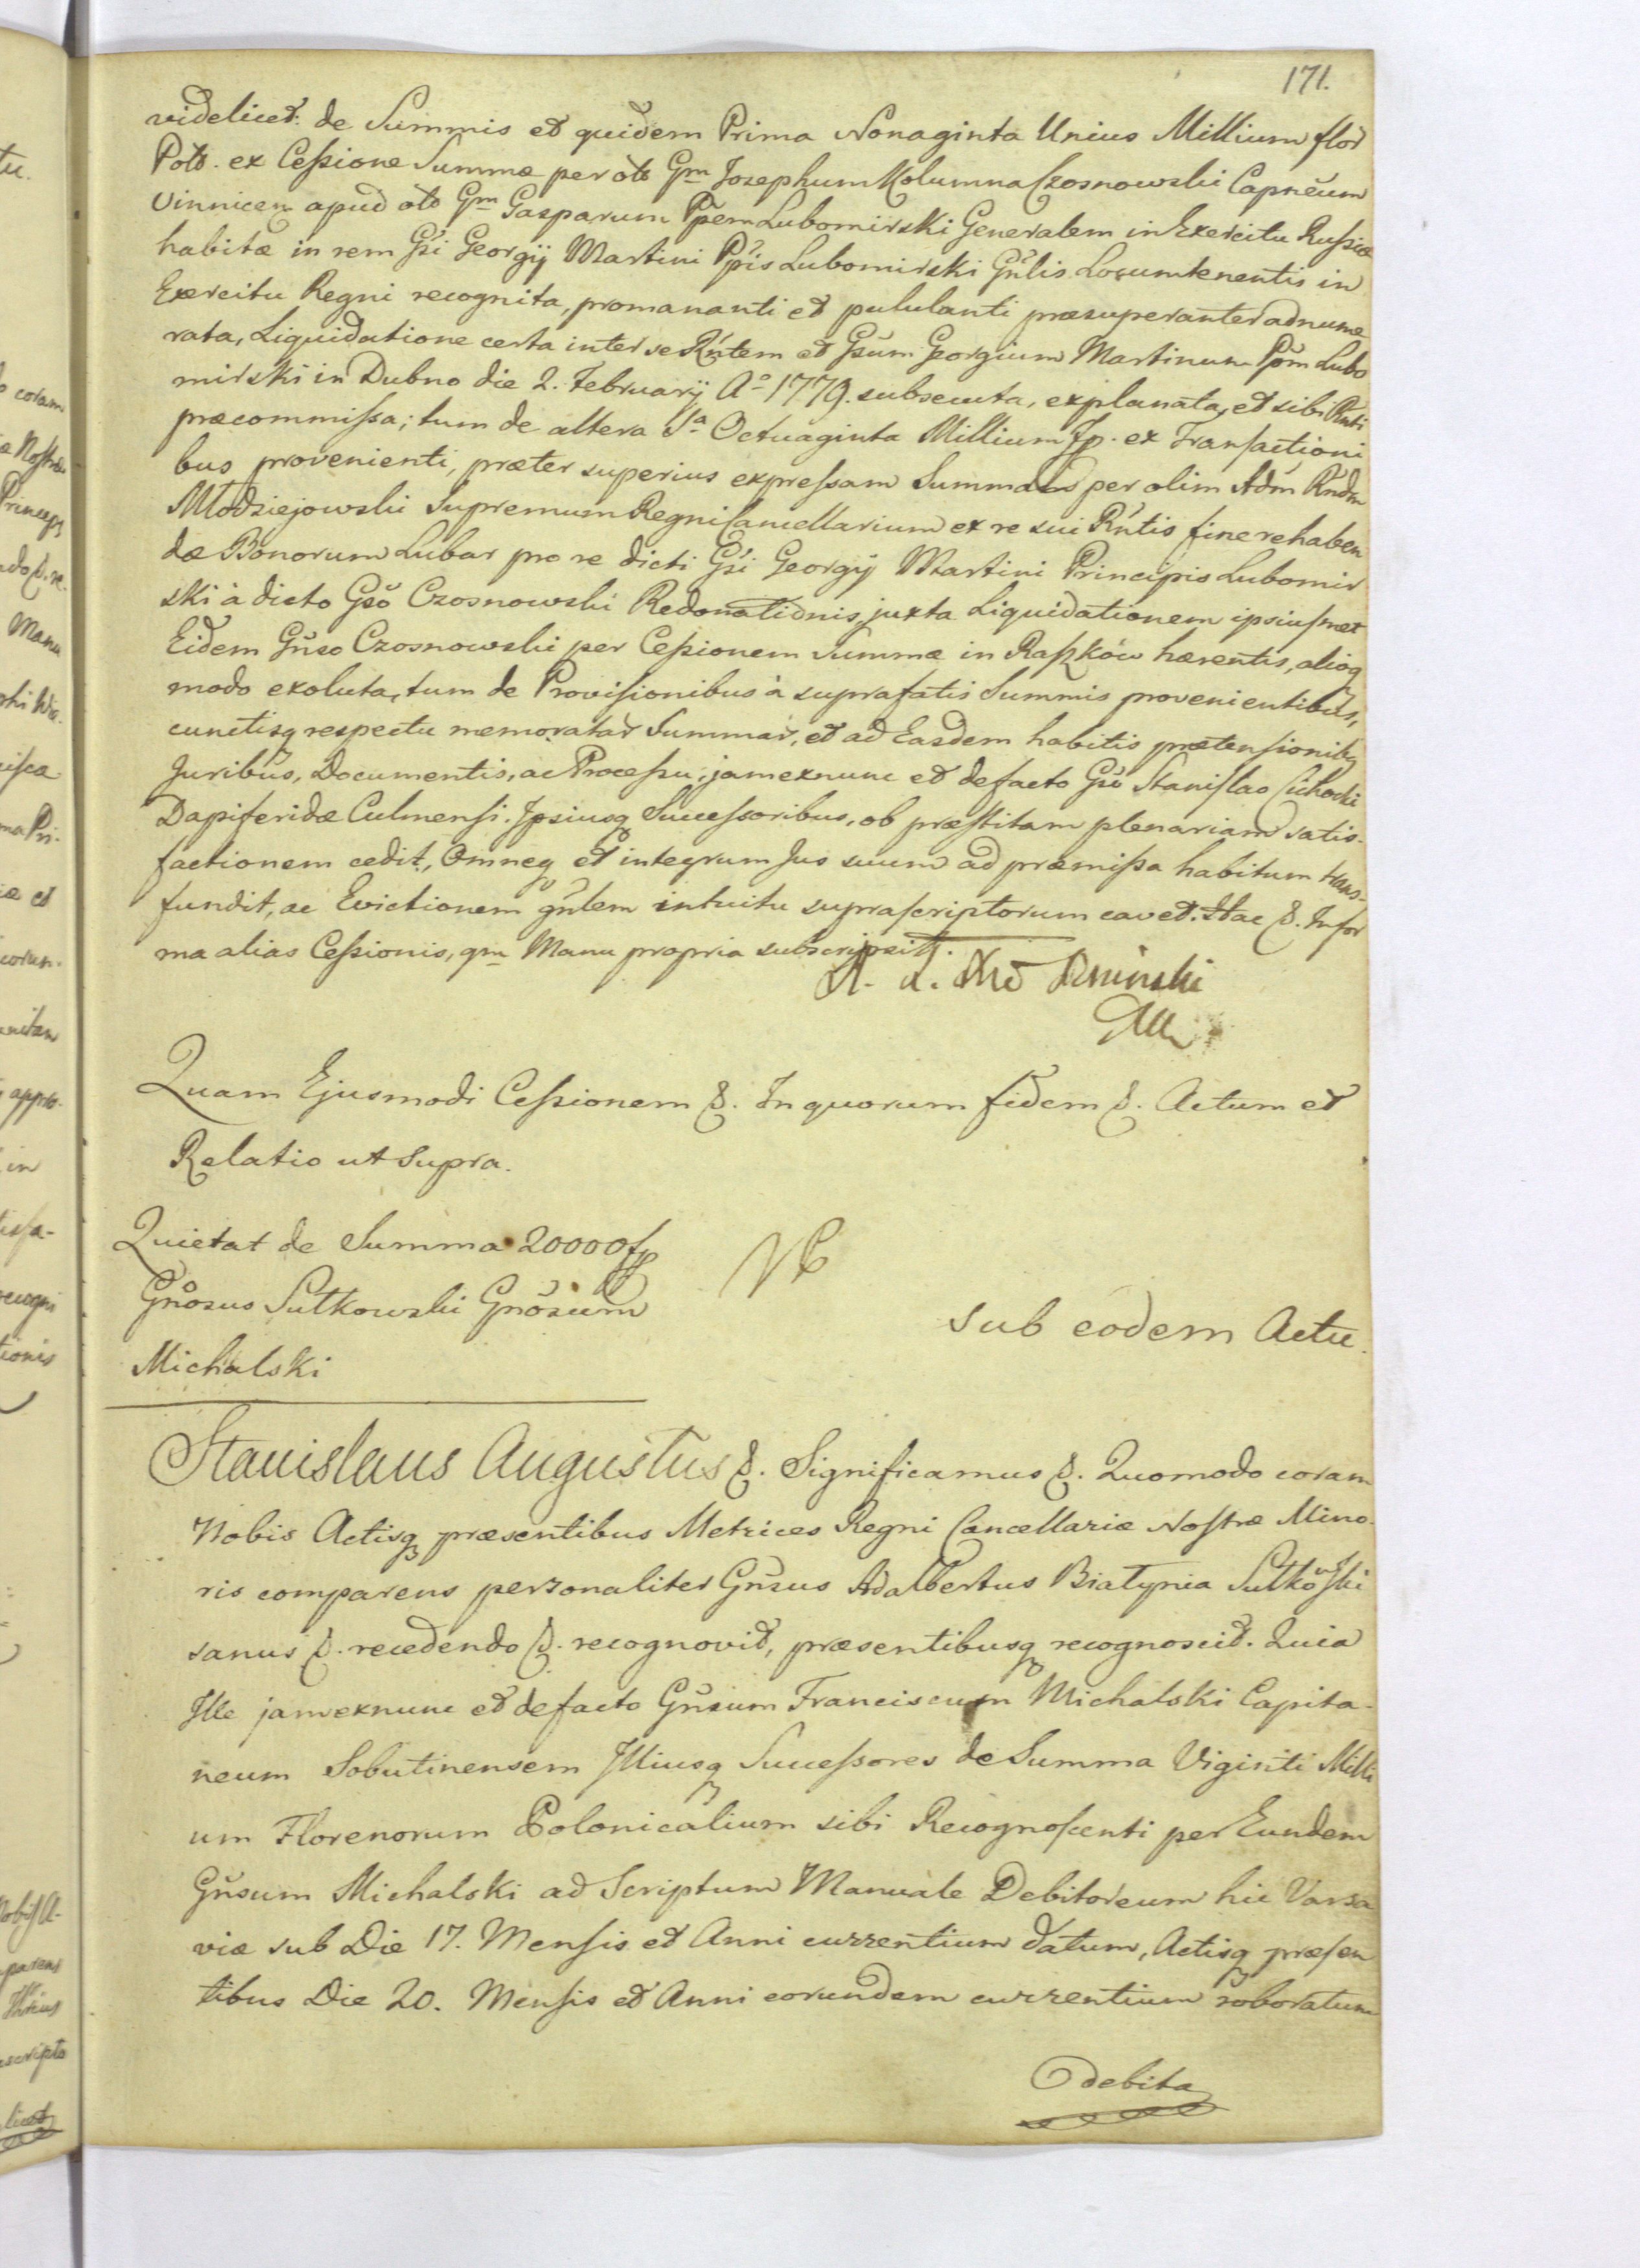 171.
videlicet: de Summis et quidem Prima Nonaginta Unius Millium flor
Polo. ex Cessione Summæ per olo Gm Josephum Kolumna Czosnowski Capneum
Vinnicen apud olo Gm Gasparum Ppem Lubomirski Generalem in Exercitu Russiæ
habitæ in rem Gsi Georgij Martini Ppis Lubomirski Gnlis Locumtenentis in
Exercitu Regni recognita, promananti et pululanti præsuperanter adnume
rata, Liquidatione certa inter se Rntem et Gsum Georgium Martinum Ppm Lubo
mirski in Dubno die 2. Februarij Ao 1779. subsecuta, explanata, et sibi Rnti
præcommissa; tum de altera Sa Octuaginta Millium fp. ex Transactioni
bus provenienti, præter superius expressam Summam per olim Adm Rndm
Młodziejowski Supremum Regni Cancellarium ex re sui Rntis fine rehaben
dæ Bonorum Lubar pro re dicti Gsi Georgij Martini Principis Lubomir
ski à dicto Gso Czosnowski Redonationis, juxta Liquidationem ipsiusmet
Eidem Gnso Czosnowski per Cessionem Summæ in Raszków hærentis, alioq
modo exoluta, tum de Provisionibus à suprafatis Summis provenientibus,
cunctisq respectu memoratar Summar, et ad Easdem habitis prætensionibq
Juribus, Documentis, ac Processu, jamexnunc et defacto Gso Stanislao Cichocki
Dapiferidæ Culmensi. Ipsiusq Successoribus, ob præstitam plenariam satis-
factionem cedit, Omneq et integrum Jus suum ad præmissa habitum trans-
fundit, ac Evictionem gnlem intuitu suprascriptorum cavet. Hac &. Infor
ma alias Cessionis, qm Manu propria subscripsit.
A. X. Poniński
Quam Ejusmodi Cessionem &. In quorum fidem &. Actum et
Relatio ut supra.
Quietat de Summa 20000 fp
Gnosus Sutkowski Gnosum
Michalski
sub eodem Actu.
Stanislaus Augustus &. Significamus &. Quomodo coram
Nobis Actisq præsentibus Metrices Regni Cancellariæ Nostræ Mino-
ris comparens personaliter Gnsus Adalbertus Białynia Sutkowski
sanus &. recedendo &. recognovit, præsentibusq recognoscit. Quia
Ille jamexnunc et defacto Gnsum Franciscum Michalski Capita-
neum Sobutinensem Illiusq Successores de Summa Viginti Milli
um Florenorum Polonicalium sibi Recognoscenti per Eundem
Gnsum Michalski ad Scriptum Manuale Debitoreum hic Varsa
viæ sub Die 17. Mensis et Anni currentium datum, Actisq præsen
tibus Die 20. Mensis et Anni eorundem currentium roboratum
debita